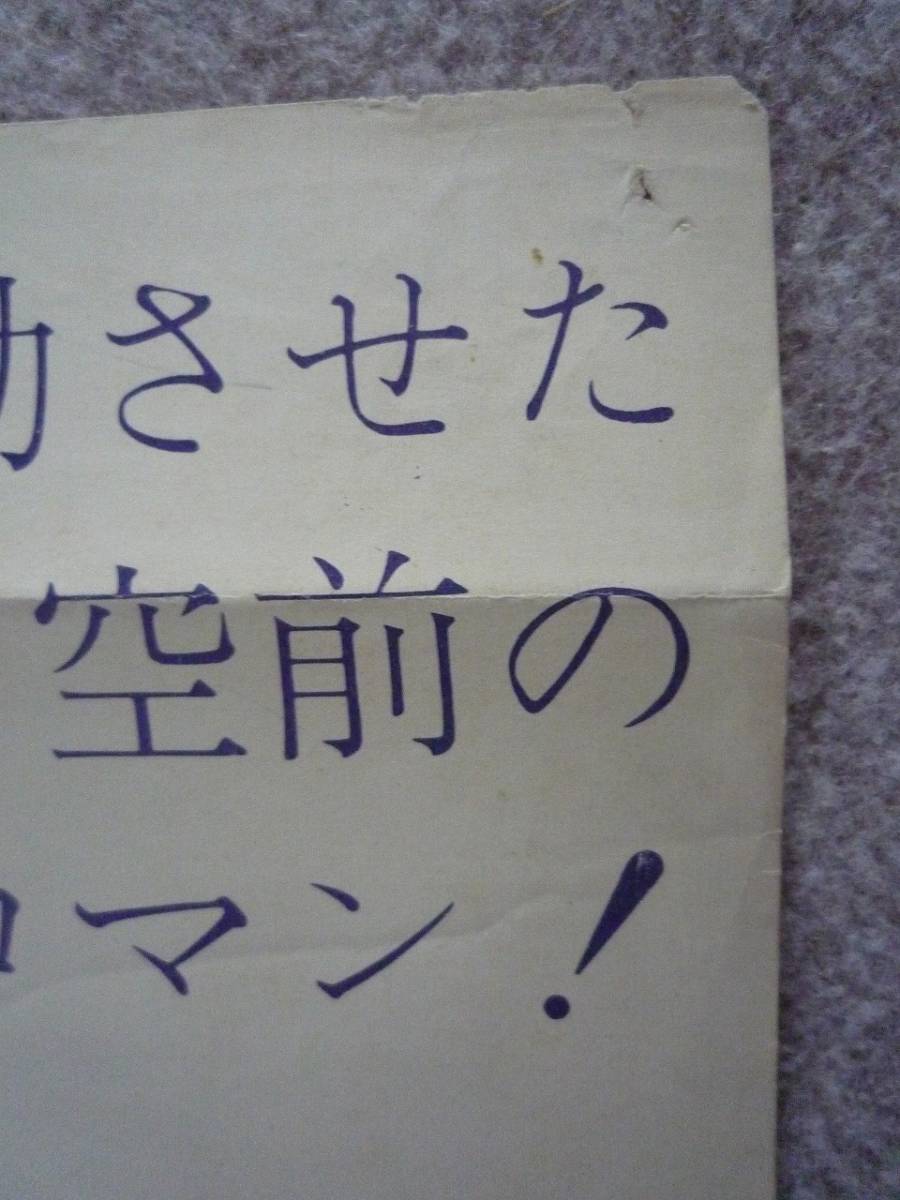 させた
空前の
マン!